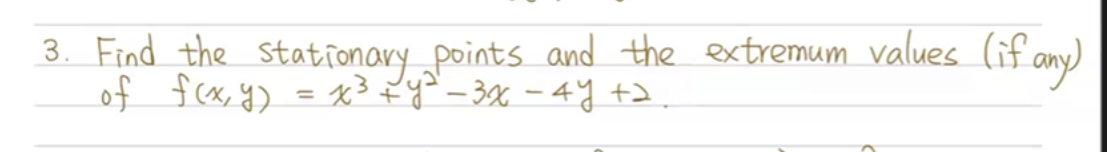 3. Find the stationary points and the extremum values (if any)
of f(x, y) = x³ + y² - 3x - 4y + 2.